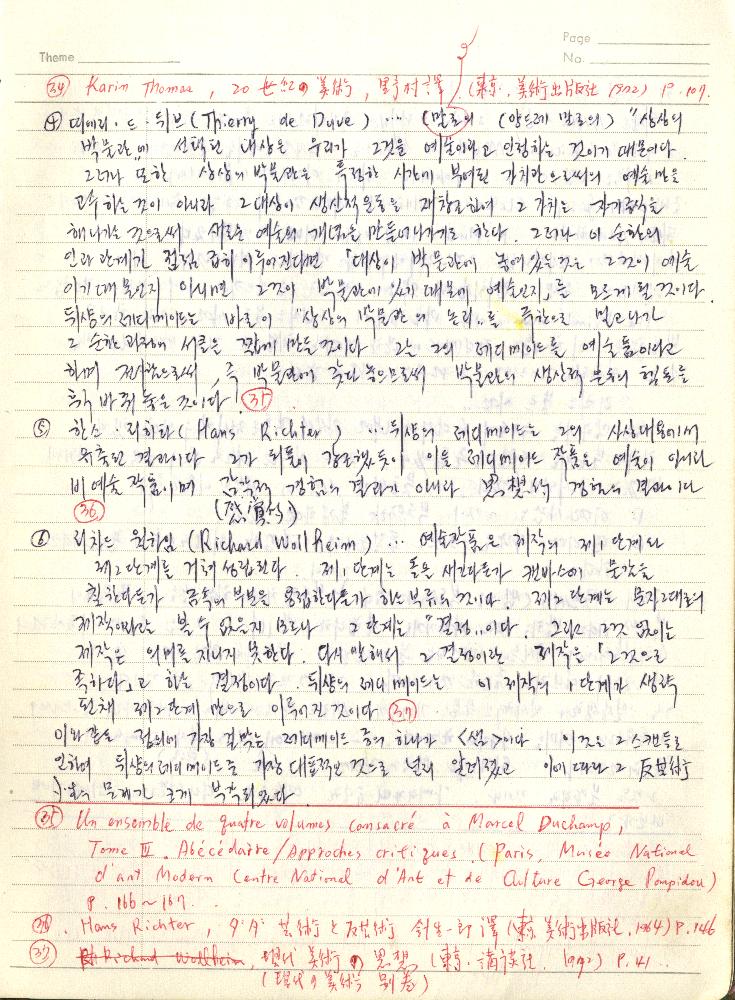 Theme
Page
No.
㉞ Karin Thomas, 20世紀の美術, 野村 譯 (東京, 美術出版社 1972) P. 107.
④ 띠에리·드·뒤브 (Thierry de Duve) ··· (말로의 (앙드레 말로의) "상상의
박물관"에 선택된 대상은 우리가 그것을 예술이라고 인정하는 것이기 때문이다.
그러나 또한 상상의 박물관은 특정한 시간에 부여된 가치만으로써의 예술만을
고수하는것이 아니라 그대상이 생산적운동을 재창조하여 그 가치는 자기증식을
해나가는 것으로써 새로운 예술의 개념을 만들어나가기도 한다. 그러나 이 순환의
인과관계가 점점 급히 이루어진다면 「대상이 박물관에 놓여있는것은 그것이 예술
이기 때문인지 아니면 그것이 박물관에 있기 때문에 예술인지」를 모르게 될 것이다.
뒤샹의 레디메이드는 바로 이 "상상의 박물관의 논리"를 극한으로 밀고나가
그 순환과정에 서클을 짧게 만든것이다. 그는 그의 레디메이드를 예술품이라고
하며 전시함으로써, 즉 박물관에 갖다 놓으므로써 박물관의 생산적 운동의 템포를
바꿔 놓은 것이다. ㉟
⑤ 한스·리히터 (Hans Richter) ··· 뒤샹의 레디메이드는 그의 사상내용에서
귀축된 결과이다. 그가 되풀이 강조했듯이 이들 레디메이드 작품은 예술이 아니라
비예술 작품이며 감각적 경험의 결과가 아니라 思想的 경험의 결과이다
㊱ (感覺的)
⑥ 리차드 월하임 (Richard Wollheim) ··· 예술작품은 제작의 제1단계와
제2단계를 거쳐 성립된다. 제1단계는 돌을 새긴다든가 캔바스에 물감을
칠한다든가 금속의 부분을 용접한다든가 하는 부류의 것이다. 제2단계는 문자그대로의
제작이라고는 볼 수 없을지 모르나 그 단계는 "결정"이다. 그리고 그것 없이는
제작은 의미를 지니지 못한다. 다시 말해서 그 결정이란 제작은 「그것으로
족하다」고 하는 결정이다. 뒤샹의 레디메이드는 이 제작의 1단계가 생략
된채 제2단계 만으로 이루어진 것이다 ㊲
이와같은 정의에 가장 걸맞는 레디메이드 중의 하나가 <샘>이다. 이것은 그 스캔들로
인하여 뒤샹의 레디메이드중 가장 대표적인 것으로 널리 알려졌고 이에 따라 그 反芸術
문제가 크게 부각되었다.
㉟ Un ensemble de quatre volumes consacré à Marcel Duchamp,
Tome III. Abécédaire/Approches critiques. (Paris, Musée National
d'art Modern Centre National d'Art et de Culture George Pompidou)
P. 166~167.
㊱. Hans Richter, ダダ 芸術と反芸術 針生一郎 譯 (東京 美術出版社. 1964) P. 146
㊲ Richard Wollheim, 現代 美術の思想 (東京·講談社. 1972) P. 41..
(現代の美術 別卷)